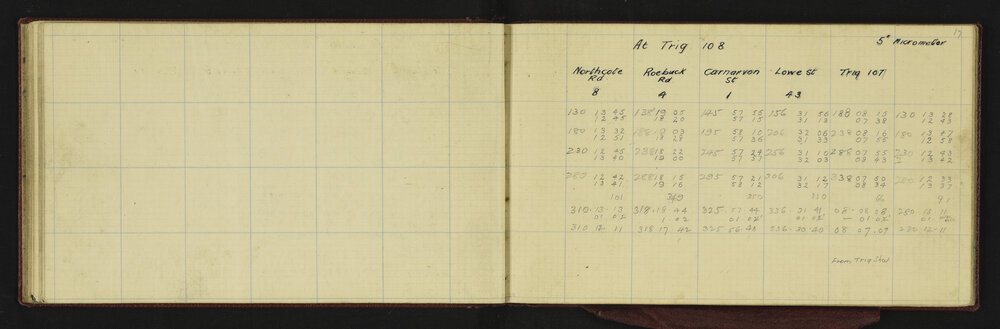 17
At Trig 108
5" Micrometer
Northcote Rd Roebuck Rd Carnarvon St Lowe St Trig 107
8 4 1 43
130 13 45 138 19 05 145 57 55 156 31 56 188 08 15 130 13 28
12 45 18 20 57 15 31 13 07 38 12 43
180 13 32 188 19 03 195 58 10 206 32 06 238 08 16 180 13 47
12 51 18 28 57 36 31 33 07 55 12 58
230 12 45 238 18 22 245 57 24 256 31 10 288 07 55 230 12 43
13 40 19 00 57 37 32 03 08 43 13 42
280 12 42 288 18 15 295 57 21 306 31 12 338 07 50 280 12 33
13 41 19 16 58 12 32 17 08 34 13 37
101 349 250 250 91
310 13 13 318 18 44 325 57 44 336 31 41 08 08 08 280 13
01 02 1 02 01 02 01 02 — 01 02
310 12 11 318 17 42 325 56 40 336 30 40 08 07 07 280 12 11
From Trig Stn